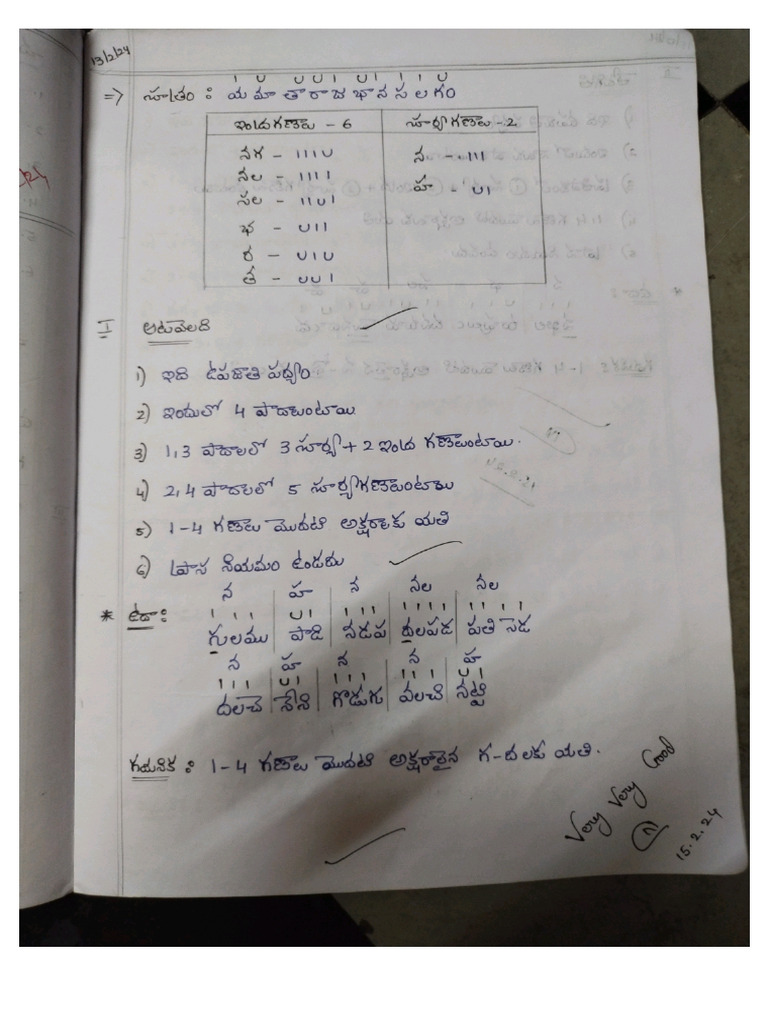 13/2/24
I U U U I U I I I U
=> సూత్రం : యమాతారాజభానసలగం
ఇంద్రగణాలు - 6 సూర్యగణాలు - 2
నగ - IIIU న - III
నల - IIII హ - UI
సల - IIUI
భ - UII
ర - UIU
త - UUI
I ఆటవెలది
1) ఇది ఉపజాతి పద్యం
2) ఇందులో 4 పాదాలుంటాయి
3) 1,3 పాదాలలో 3 సూర్య + 2 ఇంద్ర గణాలుంటాయి.
4) 2,4 పాదాలలో 5 సూర్యగణాలుంటాయి
5) 1-4 గణాల మొదటి అక్షరాలకు యతి
6) ప్రాస నియమం ఉండదు
న హ న నల నల
* ఉదా : I I I U I I I I I I I I I I I I
గులము పాడి నడప దలపడ పతి సెడ
న హ న న హ
I I I U I I I I I I I U I
దలచె నేని గొడుగు వలచి నేట్టి
గమనిక : 1-4 గణాల మొదటి అక్షరాలైన గ-దలకు యతి.
Very Very Good
15.2.24